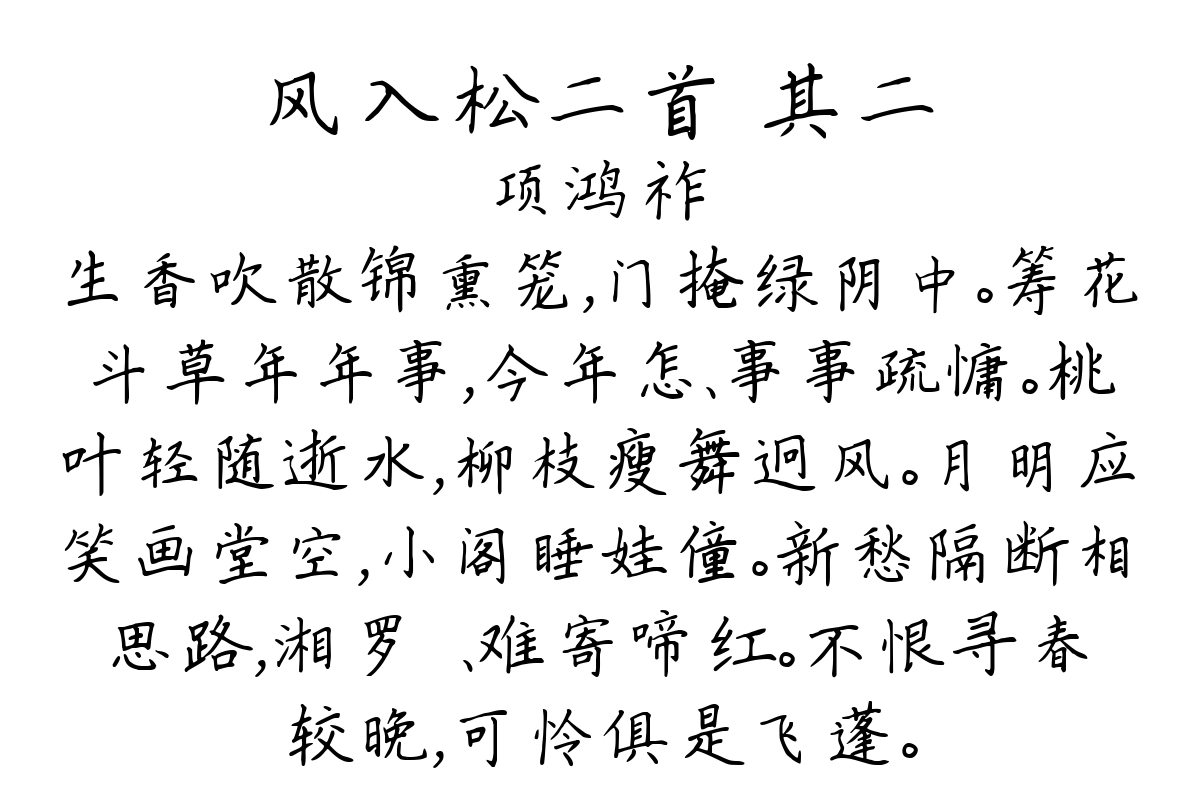 风入松二首 其二
项鸿祚
生香吹散锦熏笼,门掩绿阴中。筹花
斗草年年事,今年怎、事事疏慵。桃
叶轻随逝水,柳枝瘦舞迥风。月明应
笑画堂空,小阁睡娃僮。新愁隔断相
思路,湘罗 、难寄啼红。不恨寻春
较晚,可怜俱是飞蓬。